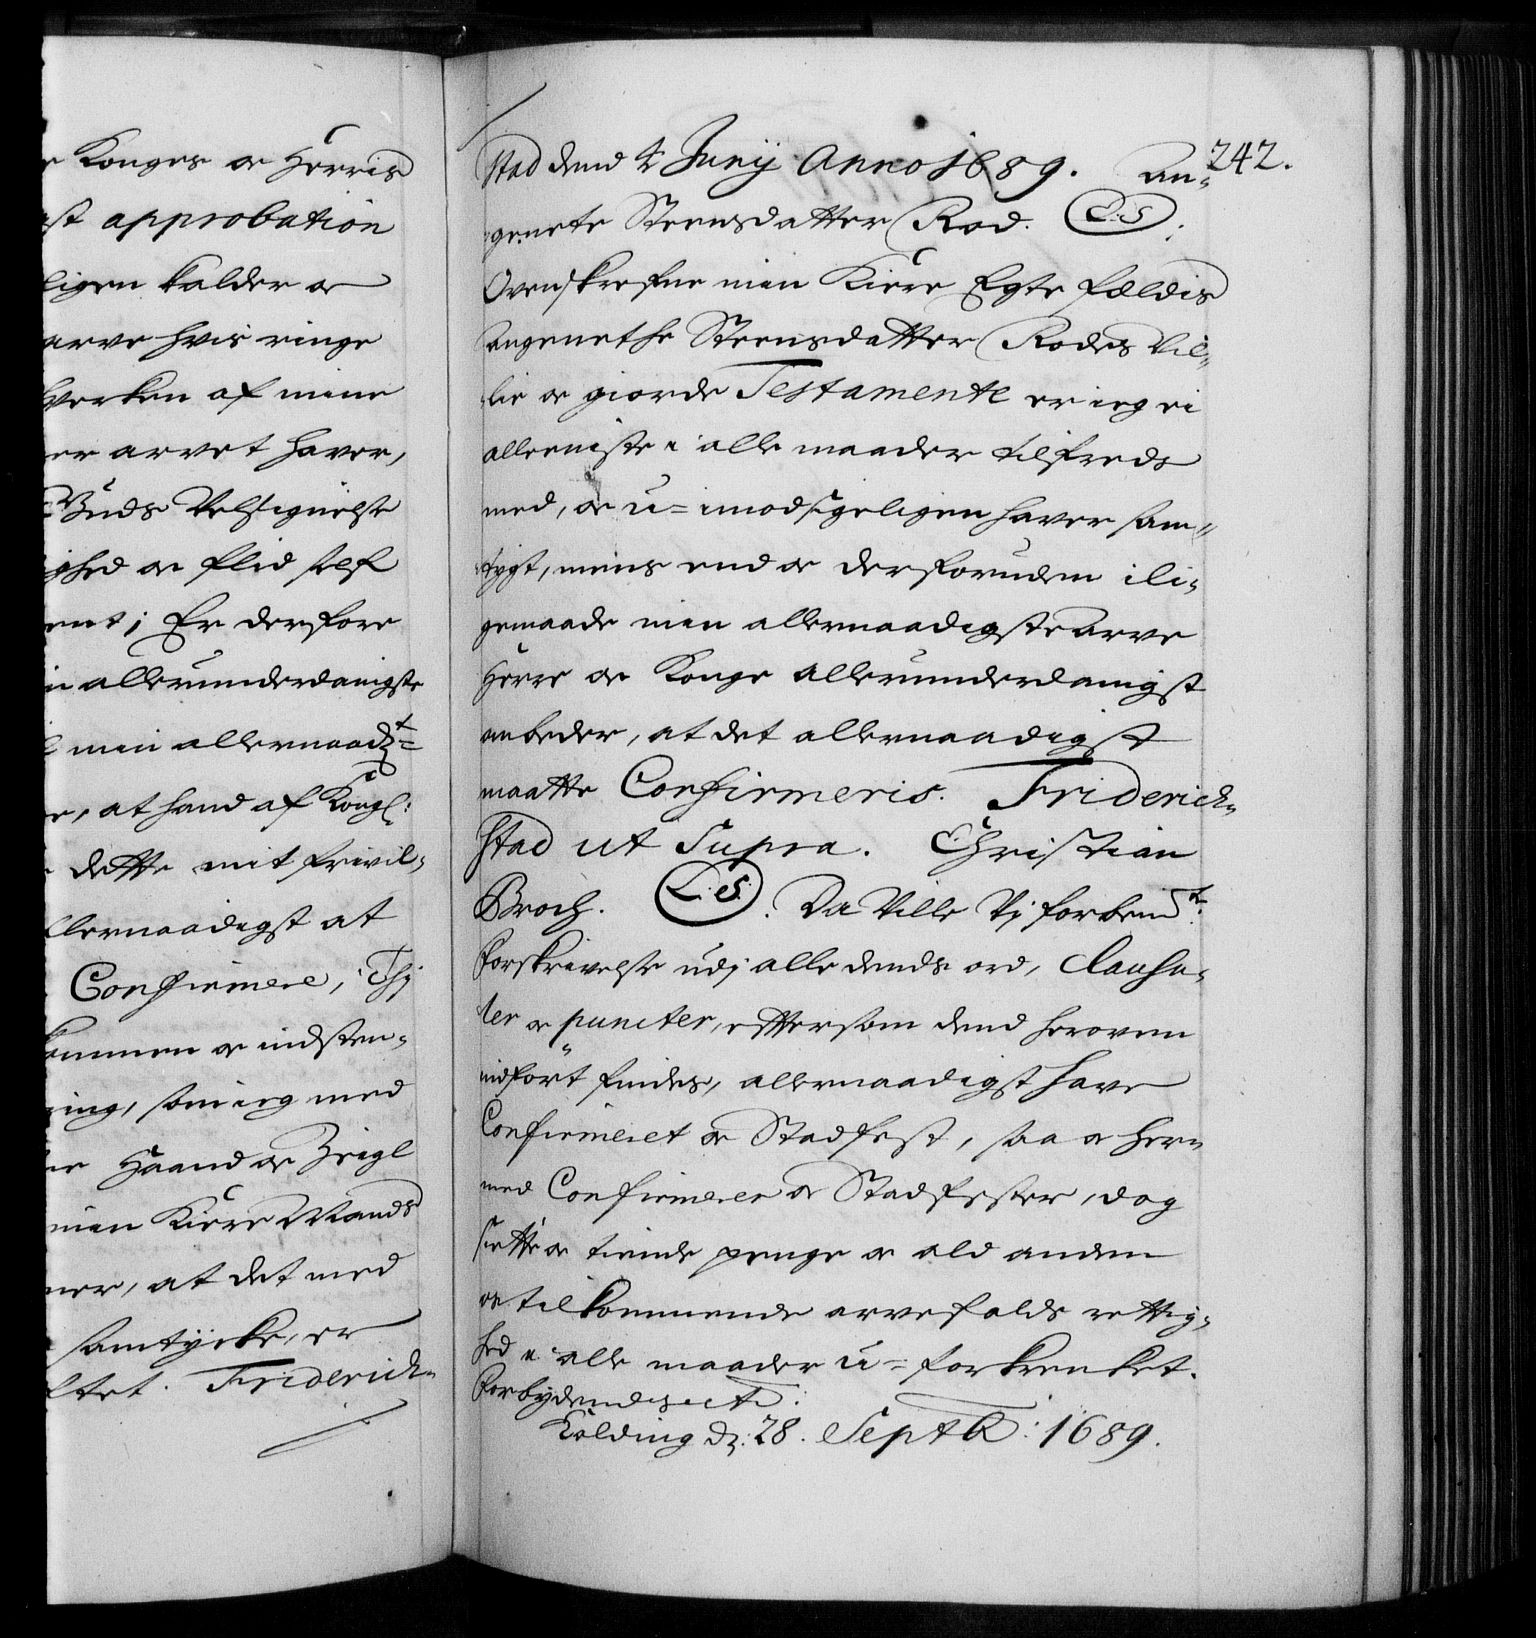 e Konges oc Herris
st approbation
ligen kalder oc
arve hvis ringe
hverken af mine
er arvet haver,
Guds Velsignelse
ighed oc flid self
ent; Er derfore
n allerunderdanigste
min allernaadgt=
e, at hand af Kongl:
dette mit frivil=
llernaadigst at
Confirmere, Thj
kommen oc indsten=
ning, som ieg med
ne Haand oc Zeigl
min Kiere Mands
ner, at det med
samtÿcke, er
ltet. Friderich=
242.
stad dend 4 Junÿ Anno 1689. An=
genete Steensdatter Rod. L.S.;
Ovenskrefne min Kiere Egte fældis
Angenethe Steensdatter Rodes Vil=
lie oc giorde Testamente er ieg ei
alleeniste i alle maader tilfreds
med, oc u=imodsigeligen haver sam=
tygt, mens end oc derforuden i li=
gemaade min allernaadigste Arve
Herre oc Konge allerunderdanigst
anbeder, at det allernaadigst
maatte Confirmeris. Friderich=
stad ut Supra. Christian
Broch. L.S. Da Ville Vj forbemte:
forskrivelse udj alle dends ord, Clausu=
ler oc puncter, eftersom dend heroven
indført findes, allernaadigst have
Confirmeret oc Stadfest, saa oc her=
med Confirmerer oc Stadfester, dog
siette oc tiende penge oc ald anden
os tilkommende arvefalds rettig=
hed i alle maader u=forkrenket.
Forbydendis etc:
Kolding dz: 28. Septbr: 1689.